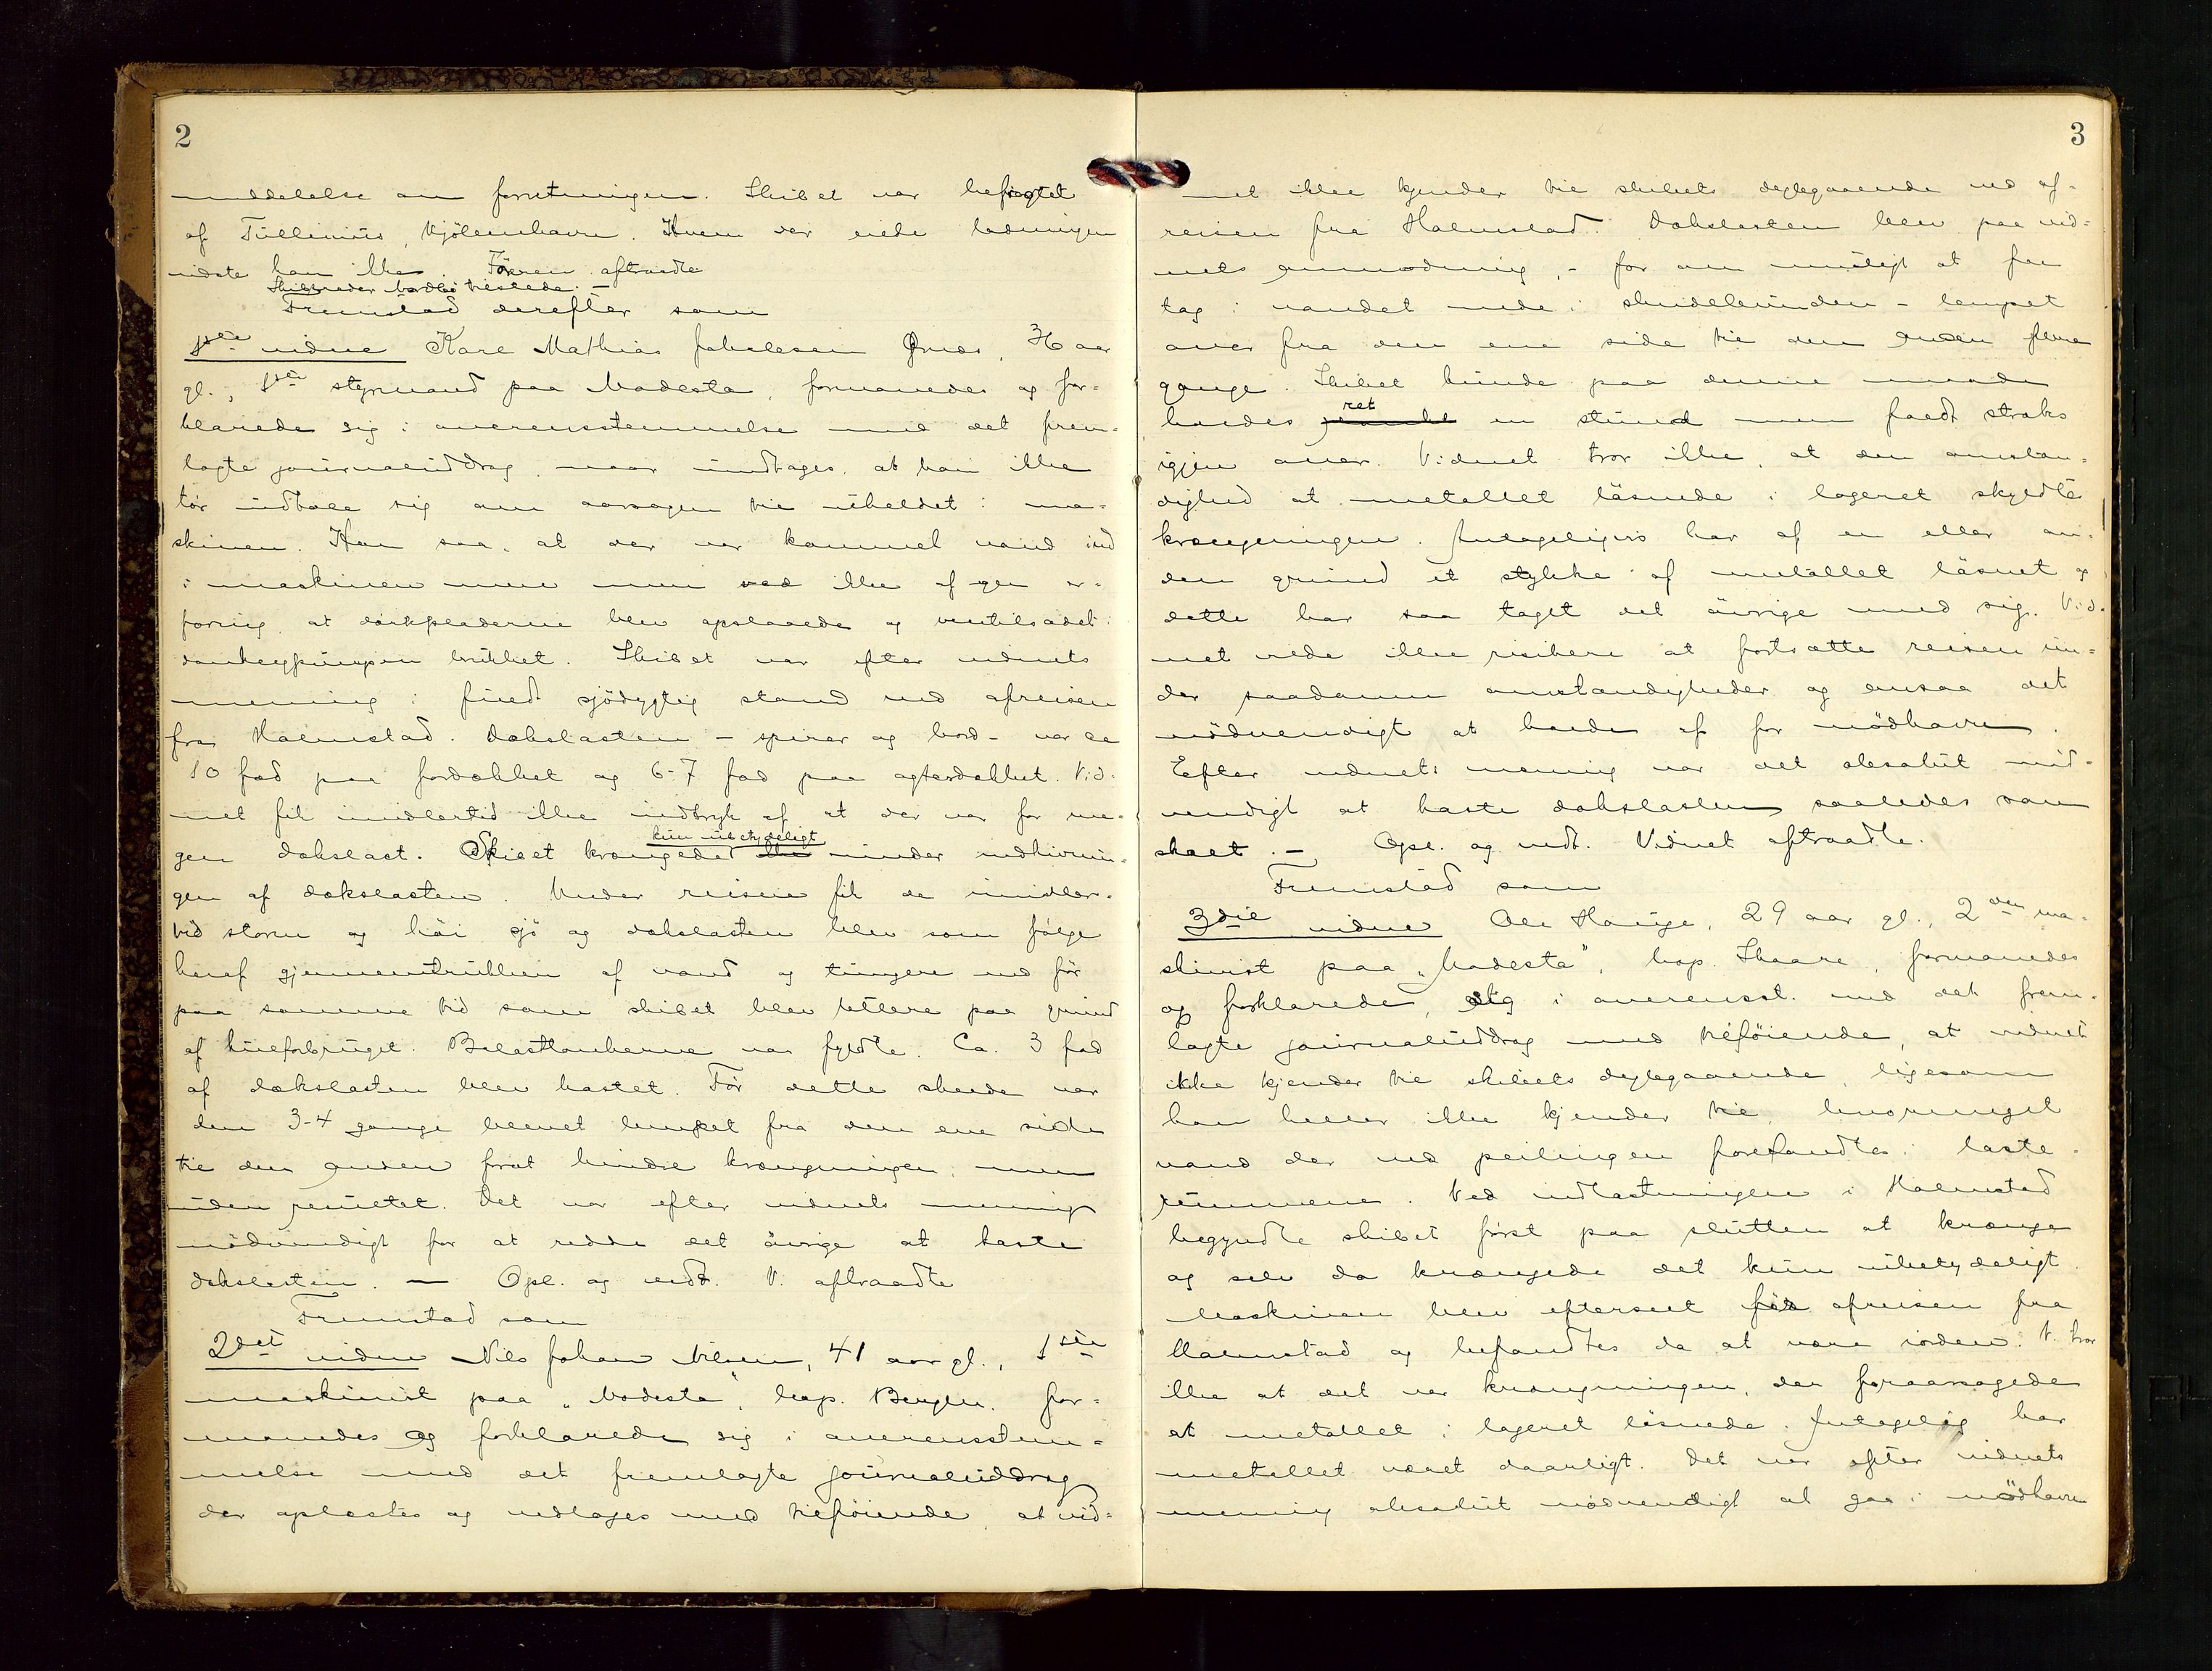 2
meddelelse om forretningen. Skibet var befragtet
af Tullinius, Kjöbenhavn. Hvem der eiede ladningen
vidste han ikke. Föreren aftraadte
Skibsreder Modhi tilstede. –
Fremstod derefter som
1ste vidne Karl Mathias Jakobsen 36 aar
gl., 1ste styrmand paa Modesta, formanedes og for=
klarede sig i overensstemmelse med det frem-
lagte journaluddrag, naar undtages, at han ikke
tör udtale sig om aarsagen til uheldet i ma-
skinen. Han saa, at der var kommet vand ind
i maskinen men men ved ikke af egen er-
faring, at dörkpladerne blev opslaaede og ventilsædet i
donkeypumpen brukket. Skibet var efter vidnets
mening i fuldt sjödygtig stand ved afreisen
fra Halmstad. Dækslasten – spirer og bord – var ca
10 fod paa fordækket og 6-7 fod paa agterdækket. Vid-
net fik imidlertid ikke indtryk af at der var for me-
gen dækslast. Skibet krængedet kun ubetydeligt under indhivnin-
gen af dækslasten. Under reisen fik de imidler-
tid storm og höi sjö og dækslasten blev som fölge
heraf gjennemtrukken af vand og tungere end för
paa samme tid som skibet blev lettere paa grund
af kulforbruget. Ballasttankerne var fyldte. Ca. 3 fod
af dækslasten blev kastet. För dette skede var
den 3-4 gange blevet lempet fra den ene side
til den anden forat hindre krængningen, men
uden resultat. Det var efter vidnets mening
nödvendigt for at redde det övrige at kaste
dækslasten. — Opl. og vedt. V. aftraadte
Fremstod som
2det vidne Nils Johan Nilsen, 41 aar gl., 1ste
maskinist paa „Modesta", bop. Bergen, for=
manedes og forklarede sig i overensstem=
melse med det fremlagte journaluddrag
der oplæstes og vedtoges med tilföiende, at vid=
3
net ikke kjender til skibets dybgaaende ved af-
reisen fra Halmstad. Dækslasten blev paa vid=
nets anmodning, – for om muligt at faa
tag i vandet nede i skudebunden – lempet
over fra den ene side til den anden flere
gange. Skibet kunde paa denne maade
holdes ret en stund men faldt straks
igjen over. Vidnet tror ikke, at den omstæn-
dighed at metallet lösnede i lageret skyldtes
krængningen. Antageligvis har af en eller an-
den grund et stykke af metallet lösnet og
dette har saa taget det övrige med sig. Vid-
net vilde ikke risikere at fortsætte reisen un=
der saadanne omstændigheder og ansaa det
nödvendigt at holde af for nödhavn.
Efter vidnets mening var det absolut nöd-
vendigt at kaste dækslasten saaledes som
skeet. – Opl. og vedt. Vidnet aftraadte.
Fremstod som
3die vidne Ole Hauge, 29 aar gl., 2den ma-
skinist paa „Modesta", bop. Skaare, formanedes
og forklarede sig i overensst. med det frem-
lagte journaluddrag med tilföiende, at vidnet
ikke kjender til skibets dybgaaende, ligesom
han heller ikke kjender til hvormeget
vand der ved peilingen forefandtes i laste-
rummene. Ved indlastningen i Halmstad
begyndte skibet först paa slutten at krænge
og selv da krængede det kun ubetydeligt.
Maskinen blev efterseet för afreisen fra
Halmstad og befandtes da at være iorden. V. tror
ikke at det var krængningen, der foraarsagede
at metallet i lageret lösnede. Antagelig har
metallet været daarligt. Det var efter vidnets
mening absolut nödvendigt at gaa i nödhavn